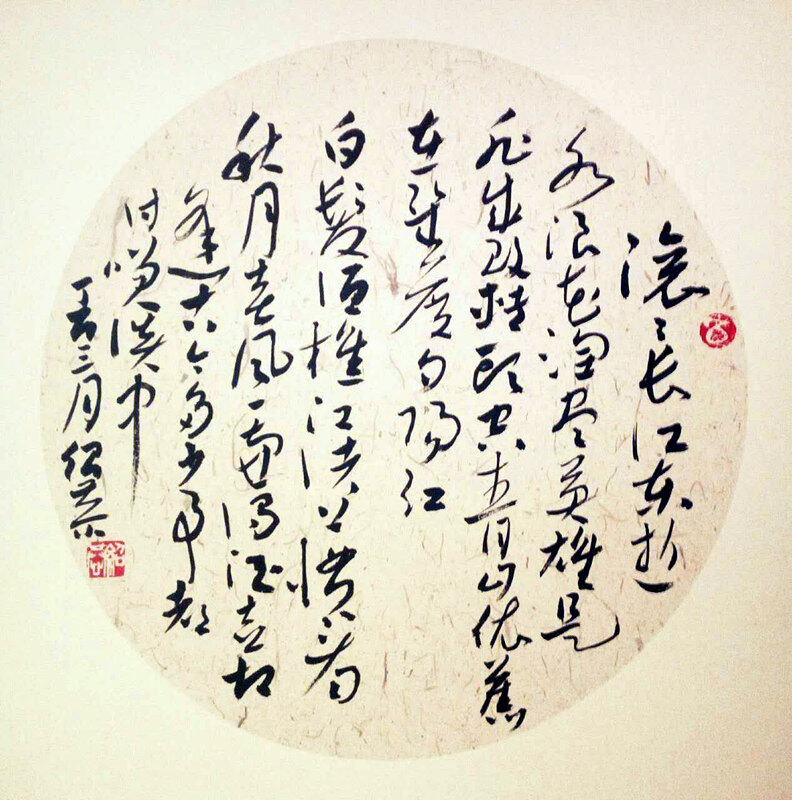 滚〻长江东逝
水浪花淘尽英雄是
非成败转头空青山依舊
在几度夕陽红
白髮渔樵江渚上惯看
秋月春风一壶浊酒喜相
逢古今多少事都
付咲谈中
三月